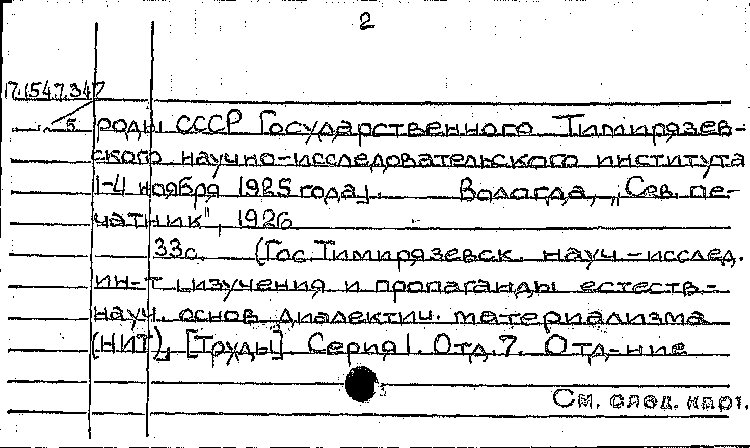 2
П.1547.347
5
роды СССР Государственного Тимирязев-
ского научно-исследовательского института
1-4 ноября 1925 года]. Вологда, „Сев. пе-
чатник", 1926
33с. (Гос. Тимирязевск. науч-исслед.
ин-т изучения и пропаганды естеств-
науч. основ диалектич. материализма
(НИТ), [Труды]. Серия 1. Отд. 7. Отд-ние
См. след. карт.